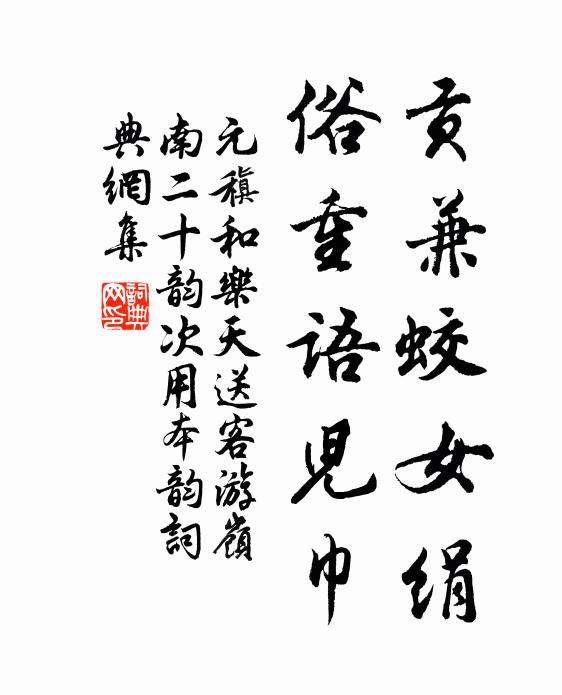 貢兼蛟女絹
俗重語兒巾
元稹和樂天送客游嶺
南二十韵次用本韵詞
典網集
詞典
网印